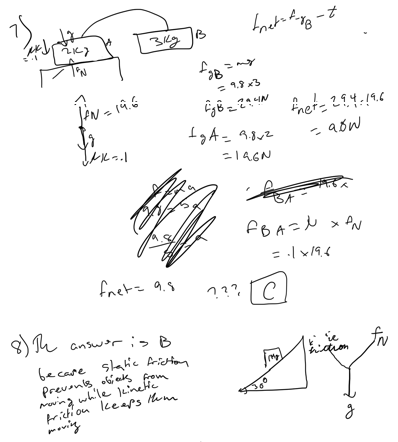 7)
μK
=.1
g
2Kg
A
fN
3Kg
B
fnet = fgB - t
fgB = mg
= 9.8 x 3
fgB = 29.4N
fnet = 29.4 - 19.6
fgA = 9.8 x 2
= 9.8N
= 19.6N
fN = 19.6
g
μK = .1
fBA = μ x fN
= .1 x 19.6
fnet = 9.8
???
C
8) Th answer is B
becase static friction
prevents objects from
moving while kinetic
friction keeps them
moving
mg
30°
friction
fN
g